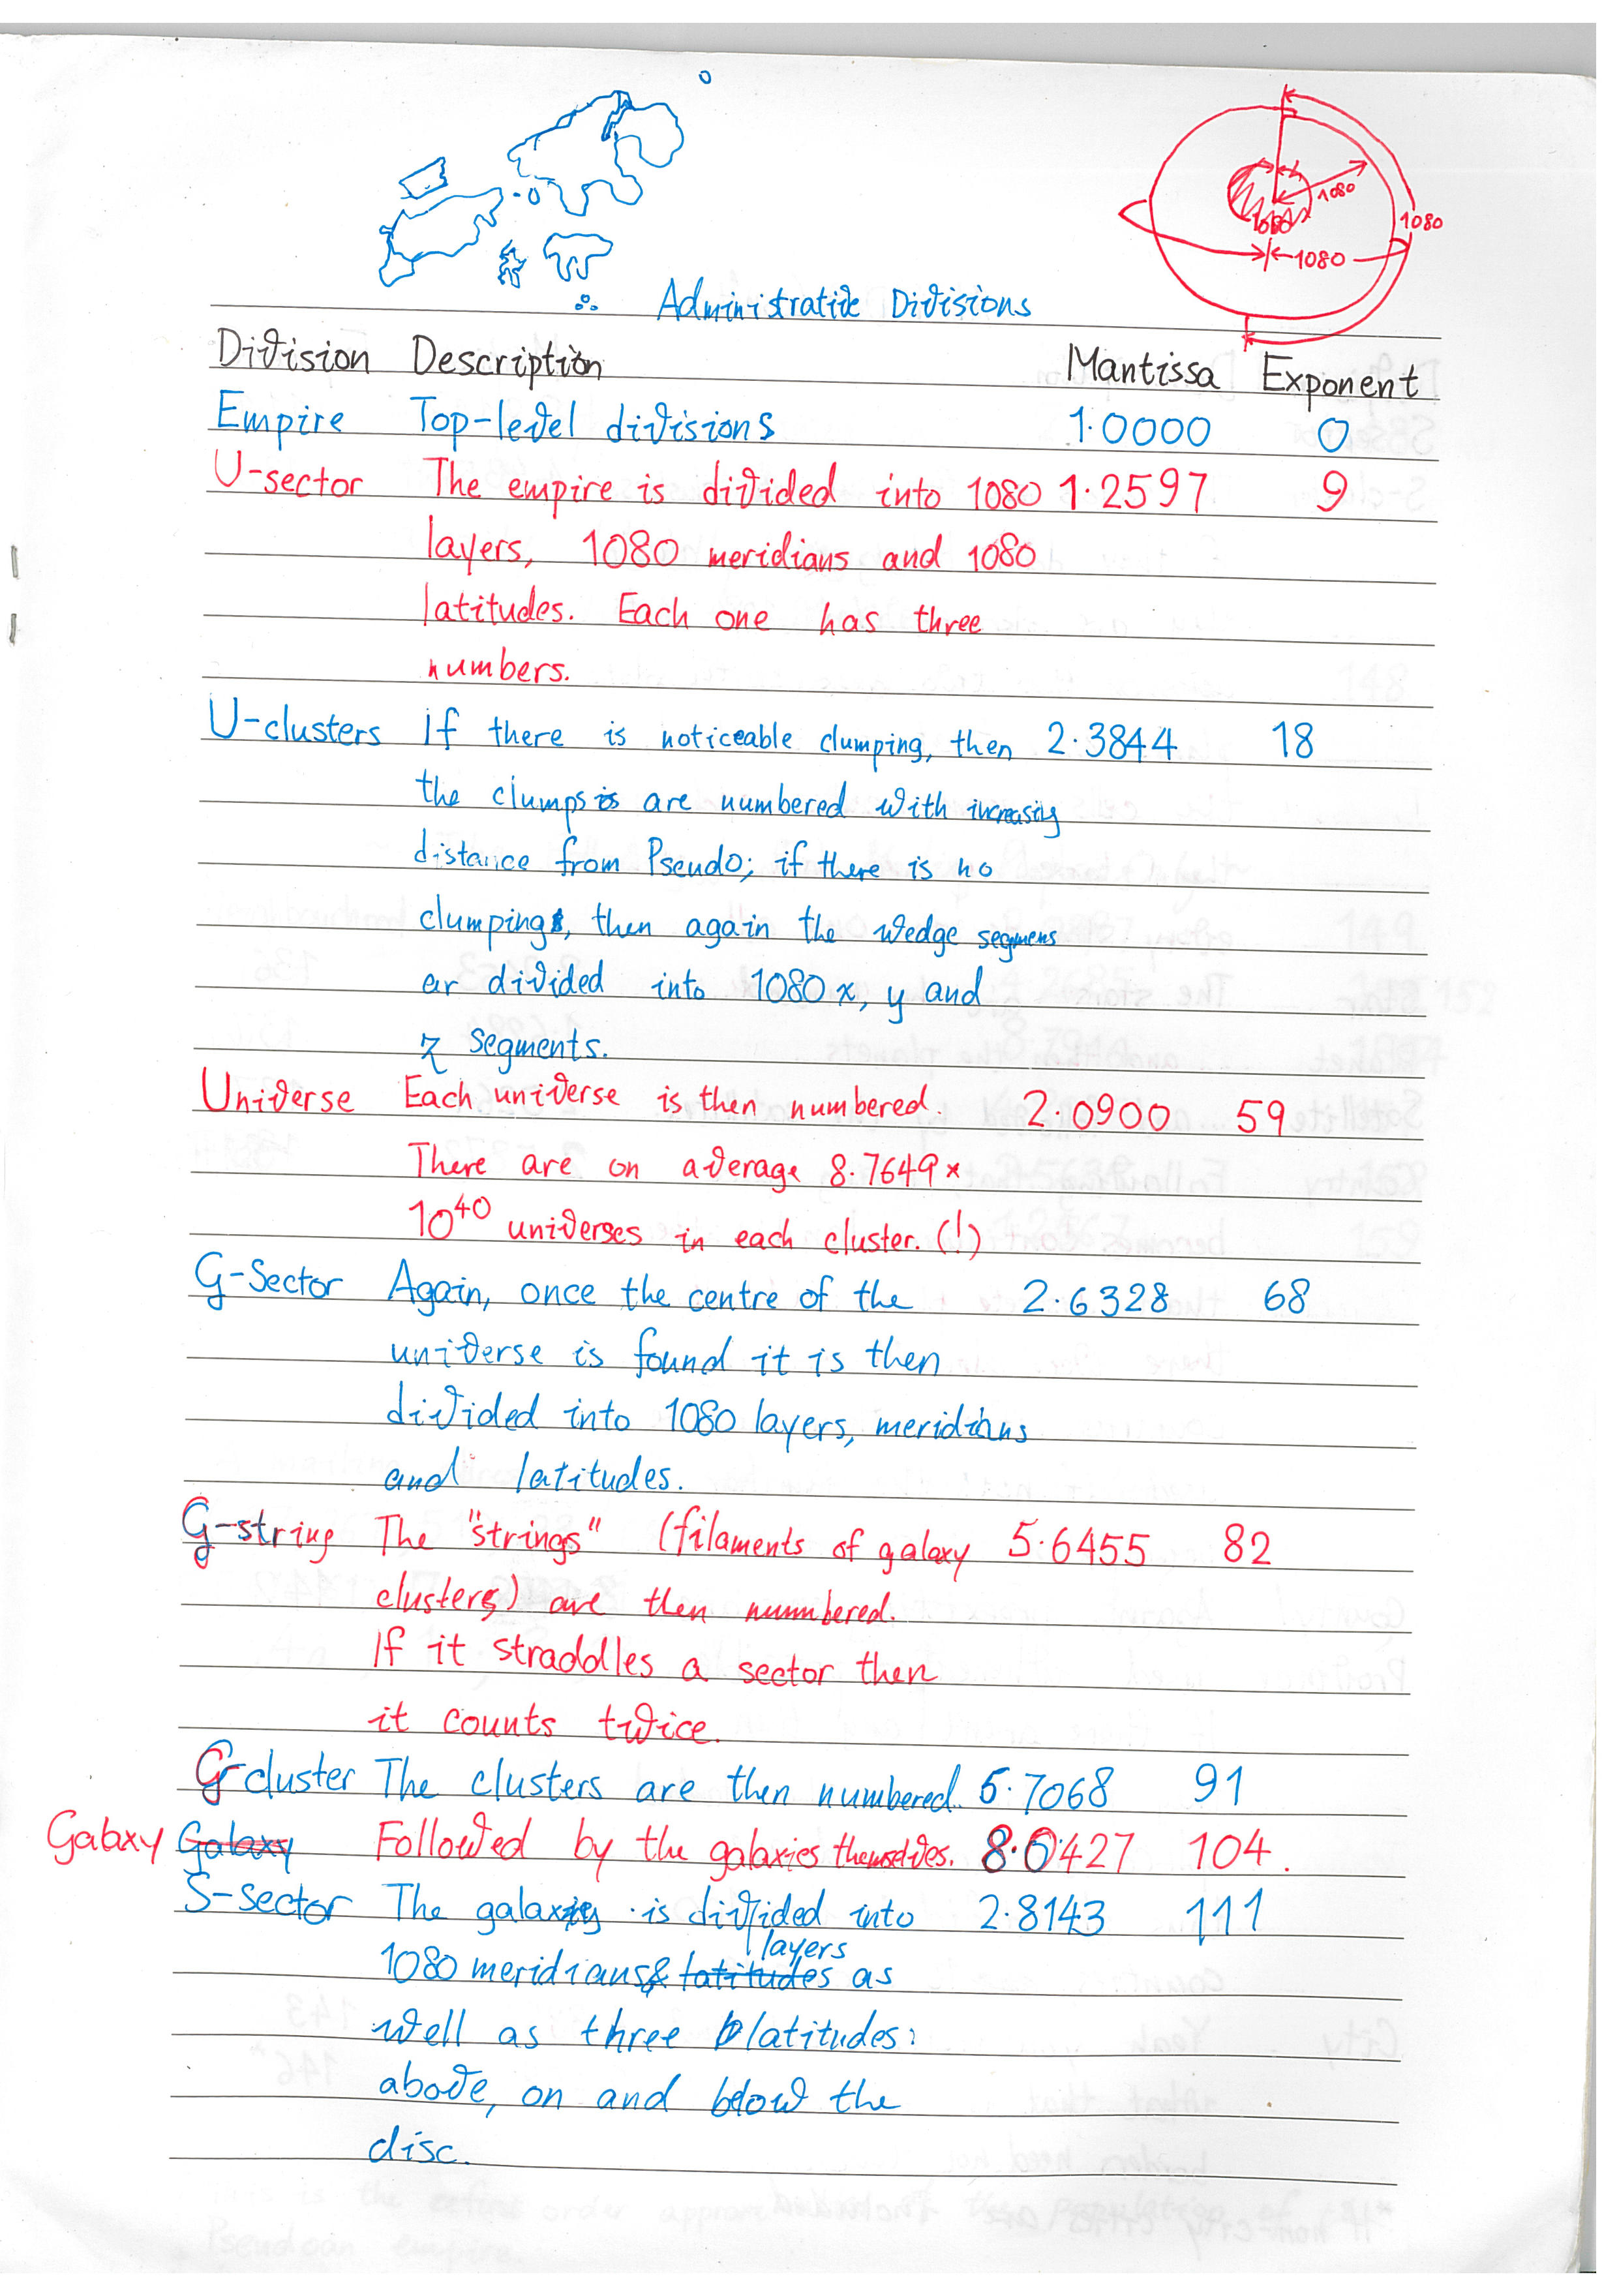 1080
1080
1080
1080
Administrative Divisions
Division Description Mantissa Exponent
Empire Top-level divisions 1.0000 0
U-sector The empire is divided into 1080 1.2597 9
layers, 1080 meridians and 1080
latitudes. Each one has three
numbers.
U-clusters If there is noticeable clumping, then 2.3844 18
the clumps are numbered with increasing
distance from Pseudo; if there is no
clumping, then again the wedge segmens
ar divided into 1080 x, y and
z segments.
Universe Each universe is then numbered. 2.0900 59
There are on average 8.7649 ×
10⁴⁰ universes in each cluster. (!)
G-Sector Again, once the centre of the 2.6328 68
universe is found it is then
divided into 1080 layers, meridians
and latitudes.
G-string The "strings" (filaments of galaxy 5.6455 82
clusters) are then numbered.
If it straddles a sector then
it counts twice.
G-cluster The clusters are then numbered. 5.7068 91
Galaxy Galaxy Followed by the galaxies themselves. 8.0427 104.
S-sector The galaxy is divided into 2.8143 111
layers
1080 meridians & latitudes as
well as three latitudes:
above, on and below the
disc.